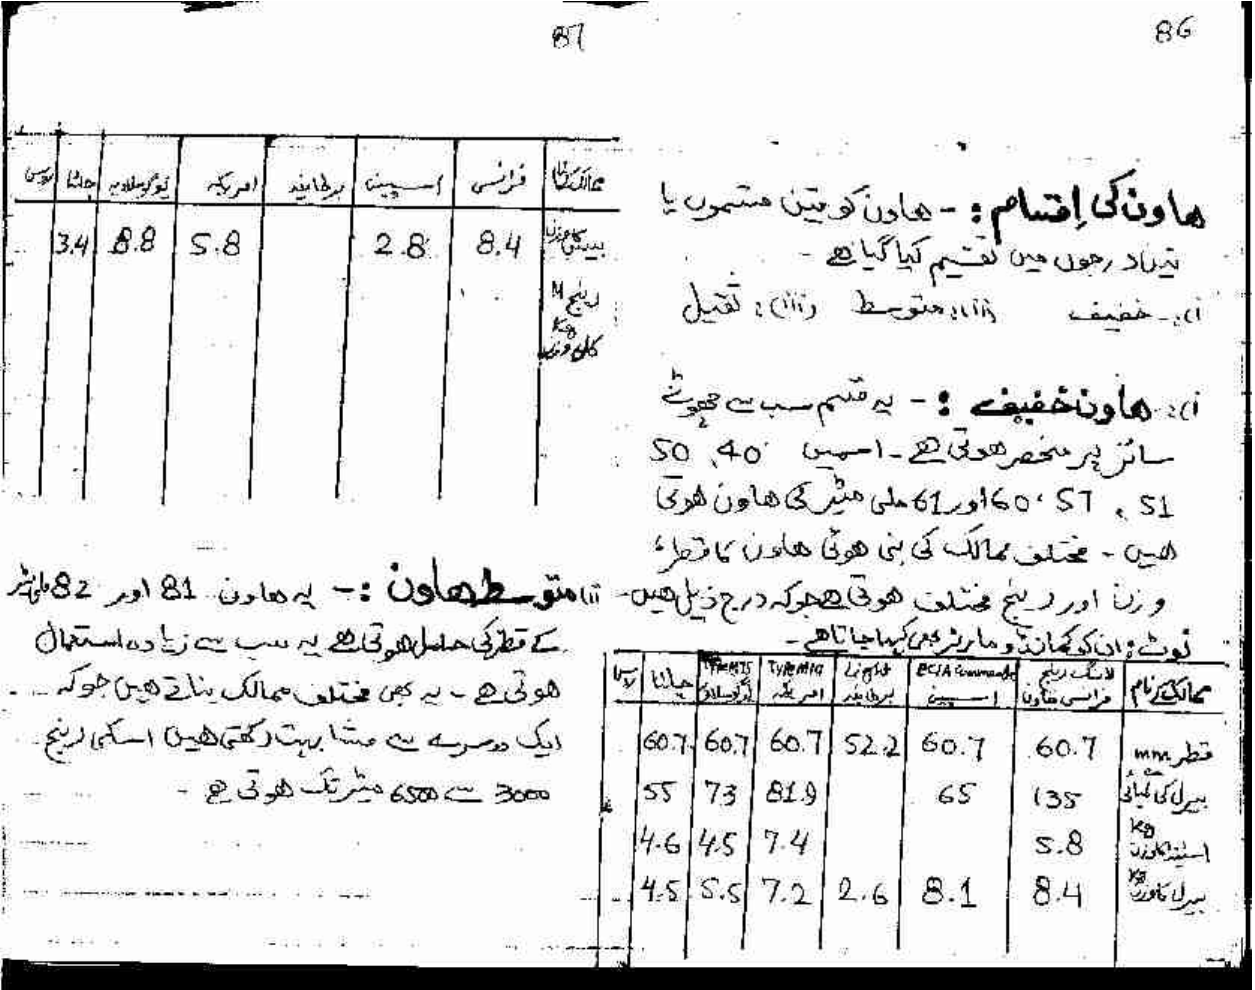 86
هاون کی اِقسام :- هاون کو تین قسموں یا
تین درجوں میں تقسیم کیا گیا ھے -
(i):- خفیف (ii): متوسط (iii): ثقیل
(i):- هاون خفیف :- یہ قسم سب سے چھوٹے
سائز پر منحصر ھوتی ھے - اسمیں 40، 50
51 ، 57 ، 60 اور 61 ملی میٹر کی هاون ھوتی
ھیں - مختلف ممالک کی بنی ھوئی هاون کا قطر،
وزن اور رینج مختلف ھوتی ھے جو کہ درج ذیل ھیں -
نوٹ: ان کو کمانڈو مارٹر بھی کہا جاتا ھے -
ممالک کے نام | لانگ رینج فرانسی هاون | ECIA Commando اسپین | Light برطانیہ | Type M19 امریکہ | یوگوسلاویہ | چائنا | روس
قطر mm | 60.7 | 60.7 | 52.2 | 60.7 | 60.7 | 60.7
بیرل کی لمبائی | 135 | 65 | | 81.9 | 73 | 55
اسٹینڈ کا وزن kg | 5.8 | | | 7.4 | 4.5 | 4.6
بیرل کا وزن kg | 8.4 | 8.1 | 2.6 | 7.2 | 5.5 | 4.5
87
ممالک کا نام | فرانسی | اسپین | برطانیہ | امریکہ | یوگوسلاویہ | چائنا | روس
بیس کا وزن | 8.4 | 2.8 | | 5.8 | 8.8 | 3.4
رینج M
کل وزن Kg
(ii) متوسط هاون :- یہ هاون 81 اور 82 ملی میٹر
کے قطر کی حامل ھوتی ھے یہ سب سے زیادہ استعمال
ھوتی ھے - یہ بھی مختلف ممالک بناتے ھیں جو کہ
ایک دوسرے سے مشابہت رکھتی ھیں اسکی رینج
3000 سے 6500 میٹر تک ھوتی ھے -